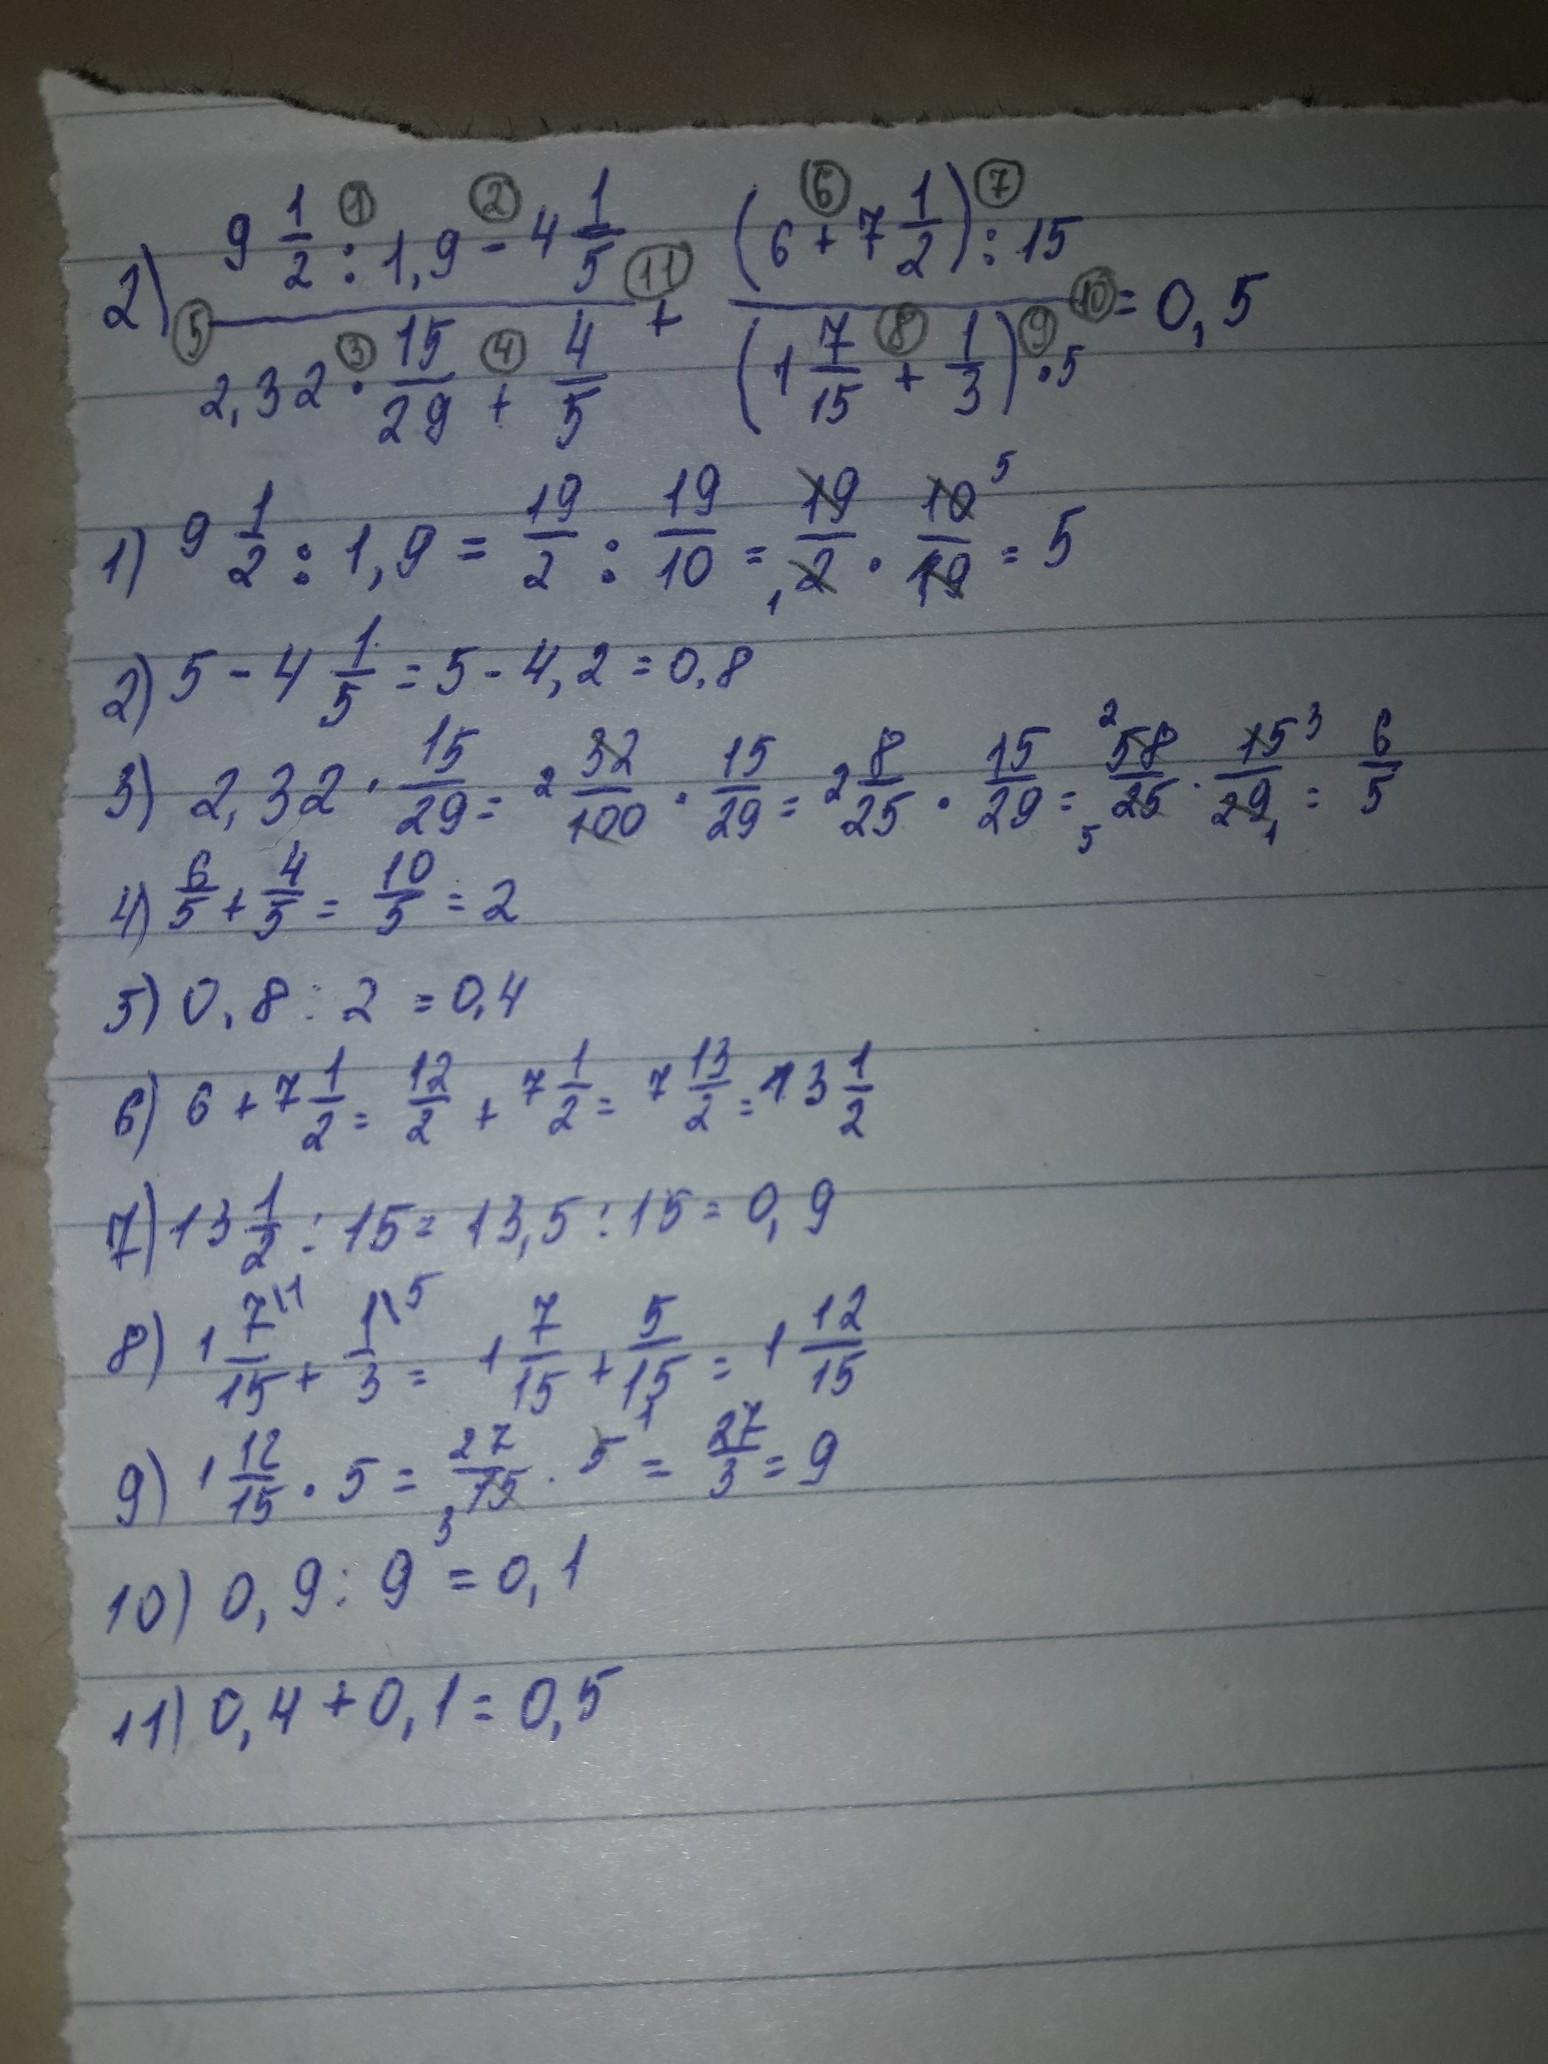 2) (9 1/2 : 1,9 - 4 1/5)/(2,32 · 15/29 + 4/5) + ((6 + 7 1/2) : 15)/((1 7/15 + 1/3) · 5) = 0,5
1) 9 1/2 : 1,9 = 19/2 : 19/10 = 19/2 · 10/19 = 5
2) 5 - 4 1/5 = 5 - 4,2 = 0,8
3) 2,32 · 15/29 = 2 32/100 · 15/29 = 2 8/25 · 15/29 = 58/25 · 15/29 = 6/5
4) 6/5 + 4/5 = 10/5 = 2
5) 0,8 : 2 = 0,4
6) 6 + 7 1/2 = 12/2 + 7 1/2 = 7 13/2 = 13 1/2
7) 13 1/2 : 15 = 13,5 : 15 = 0,9
8) 1 7/15 + 1/3 = 1 7/15 + 5/15 = 1 12/15
9) 1 12/15 · 5 = 27/15 · 5 = 27/3 = 9
10) 0,9 : 9 = 0,1
11) 0,4 + 0,1 = 0,5